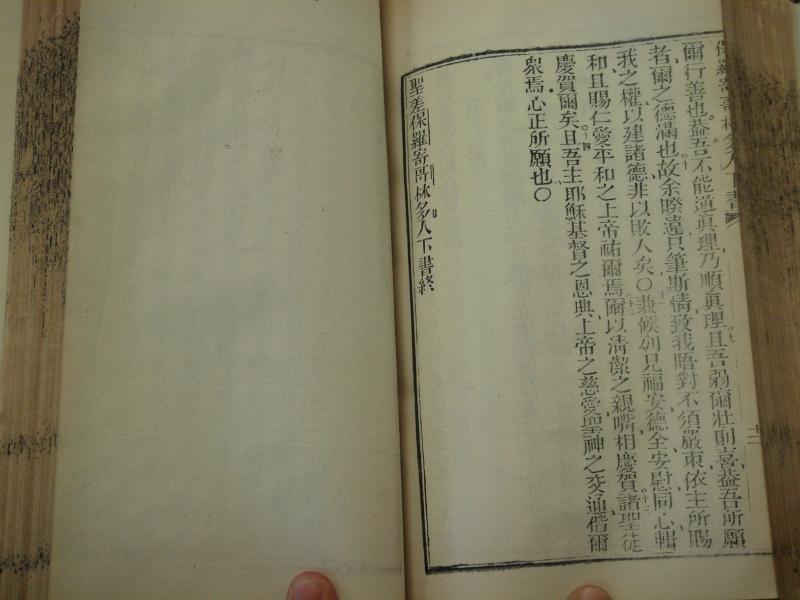 保羅寄哥林多人下書
爾行善也蓋吾不能道眞理乃順眞理且吾弱爾壯則喜蓋吾所願
者爾之德滿也故余睽違只筆斯情致我晤對不須嚴束依主所賜
我之權以建諸德非以敗人矣〇兼候列兄福安德全安慰同心輯
和且賜仁愛平和之上帝祐爾焉爾以淸潔之親嘴相慶賀諸聖徒
慶賀爾矣且吾主耶穌基督之恩典上帝之慈愛聖神之交通偕爾
衆焉心正所願也〇
聖差保羅寄哥林多人下書終